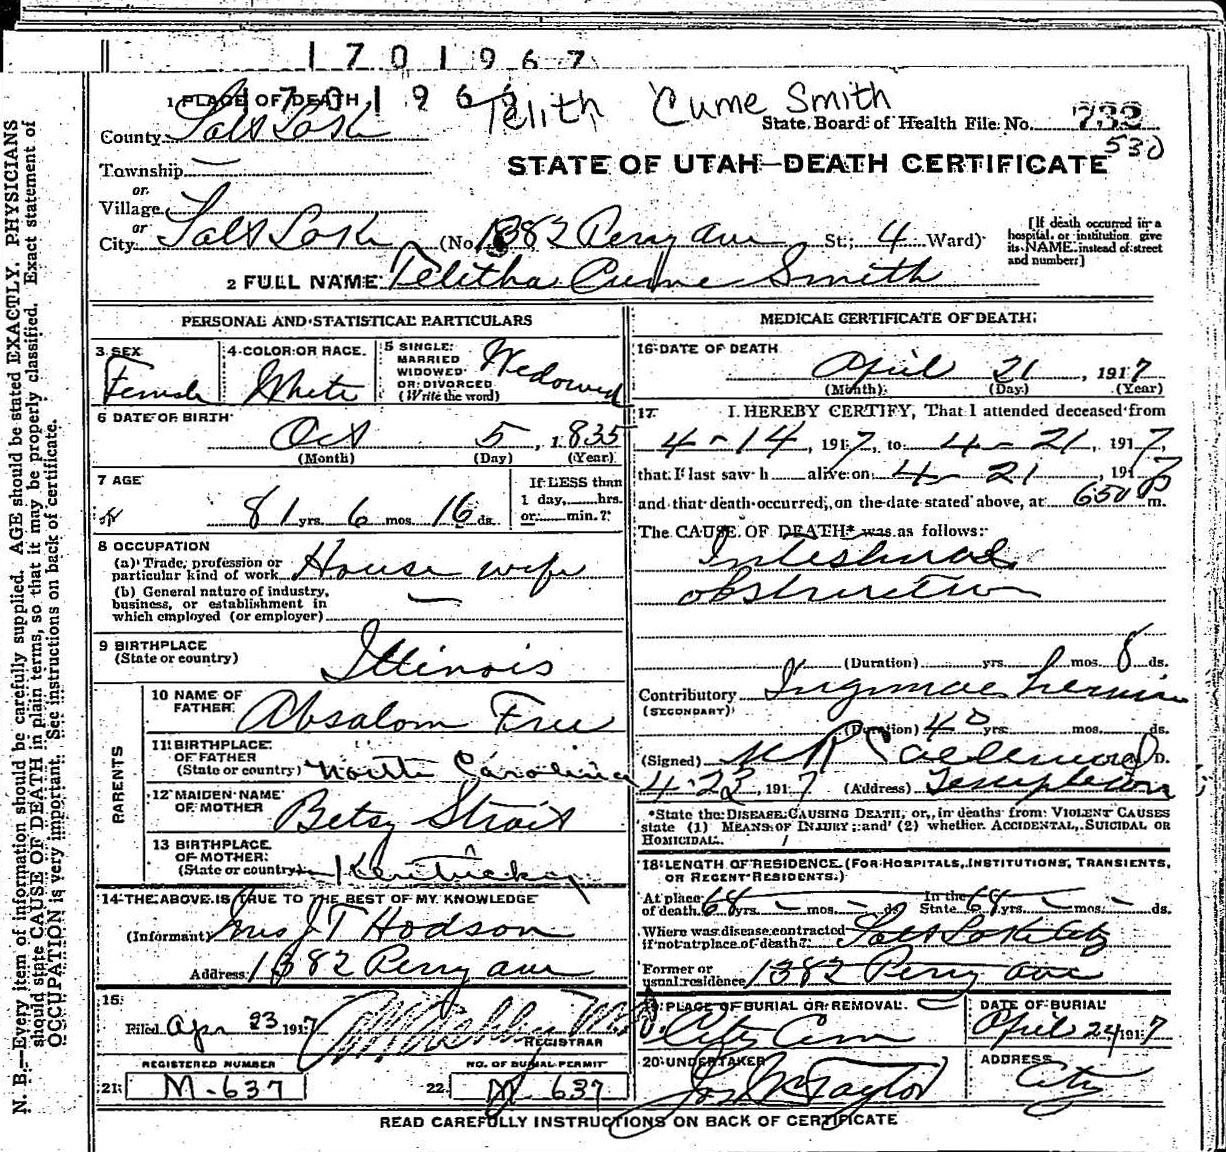 1 7 0 1 9 6 7
1 PLACE OF DEATH 1 7 0 1 9 6 Telith Cume Smith
County Salt Lake State Board of Health File No. 732
530
Township —
STATE OF UTAH—DEATH CERTIFICATE
or
Village
or
City Salt Lake (No. 1382 Perry Ave St.; 4 Ward)
[If death occurred in a
hospital or institution give
its NAME instead of street
and number.]
2 FULL NAME Telitha Cume Smith
PERSONAL AND STATISTICAL PARTICULARS
3 SEX
Female
4 COLOR OR RACE
White
5 SINGLE
MARRIED
WIDOWED
OR DIVORCED
(Write the word)
Wedowed
6 DATE OF BIRTH
Oct 5, 1835
(Month) (Day) (Year)
7 AGE
81 yrs. 6 mos. 16 ds.
If LESS than
1 day, hrs.
or min.?
8 OCCUPATION
(a) Trade, profession or
particular kind of work House wife
(b) General nature of industry,
business, or establishment in
which employed (or employer) —
9 BIRTHPLACE
(State or country) Illinois
PARENTS
10 NAME OF
FATHER Absalom Free
11 BIRTHPLACE
OF FATHER
(State or country) North Carolina
12 MAIDEN NAME
OF MOTHER Betsy Strait
13 BIRTHPLACE
OF MOTHER
(State or country) Kentucky
14 THE ABOVE IS TRUE TO THE BEST OF MY KNOWLEDGE
(Informant) Mrs J T Hodson
Address 1382 Perry ave
15
Filed Apr 23 1917
REGISTRAR
REGISTERED NUMBER
21 M-637
NO. OF BURIAL PERMIT
22 M 637
MEDICAL CERTIFICATE OF DEATH
16 DATE OF DEATH
April 21, 1917
(Month) (Day) (Year)
17 I HEREBY CERTIFY, That I attended deceased from
4-14, 1917, to 4-21, 1917,
that I last saw h alive on 4-21, 191
and that death occurred, on the date stated above, at 650 m.
The CAUSE OF DEATH* was as follows:
Intestinal
obstruction
(Duration) yrs. mos. 8 ds.
Contributory Inguinal hernia
(SECONDARY)
(Duration) 40 yrs. mos. ds.
(Signed) M. D.
4-23, 1917 (Address) Templeton
*State the DISEASE CAUSING DEATH, or, in deaths from VIOLENT CAUSES
state (1) MEANS OF INJURY; and (2) whether ACCIDENTAL, SUICIDAL OR
HOMICIDAL.
18 LENGTH OF RESIDENCE (FOR HOSPITALS, INSTITUTIONS, TRANSIENTS,
OR RECENT RESIDENTS.)
At place
of death 64 yrs. — mos. — ds.
In the
State 64 yrs. — mos. — ds.
Where was disease contracted
if not at place of death? Salt Lake City
Former or
usual residence 1382 Perry ave
19 PLACE OF BURIAL OR REMOVAL
City Cem
DATE OF BURIAL
April 24, 1917
20 UNDERTAKER
Jos Wm Taylor
ADDRESS
City
READ CAREFULLY INSTRUCTIONS ON BACK OF CERTIFICATE
N. B.—Every item of information should be carefully supplied. AGE should be stated EXACTLY. PHYSICIANS
should state CAUSE OF DEATH in plain terms, so that it may be properly classified. Exact statement of
OCCUPATION is very important. See instructions on back of certificate.